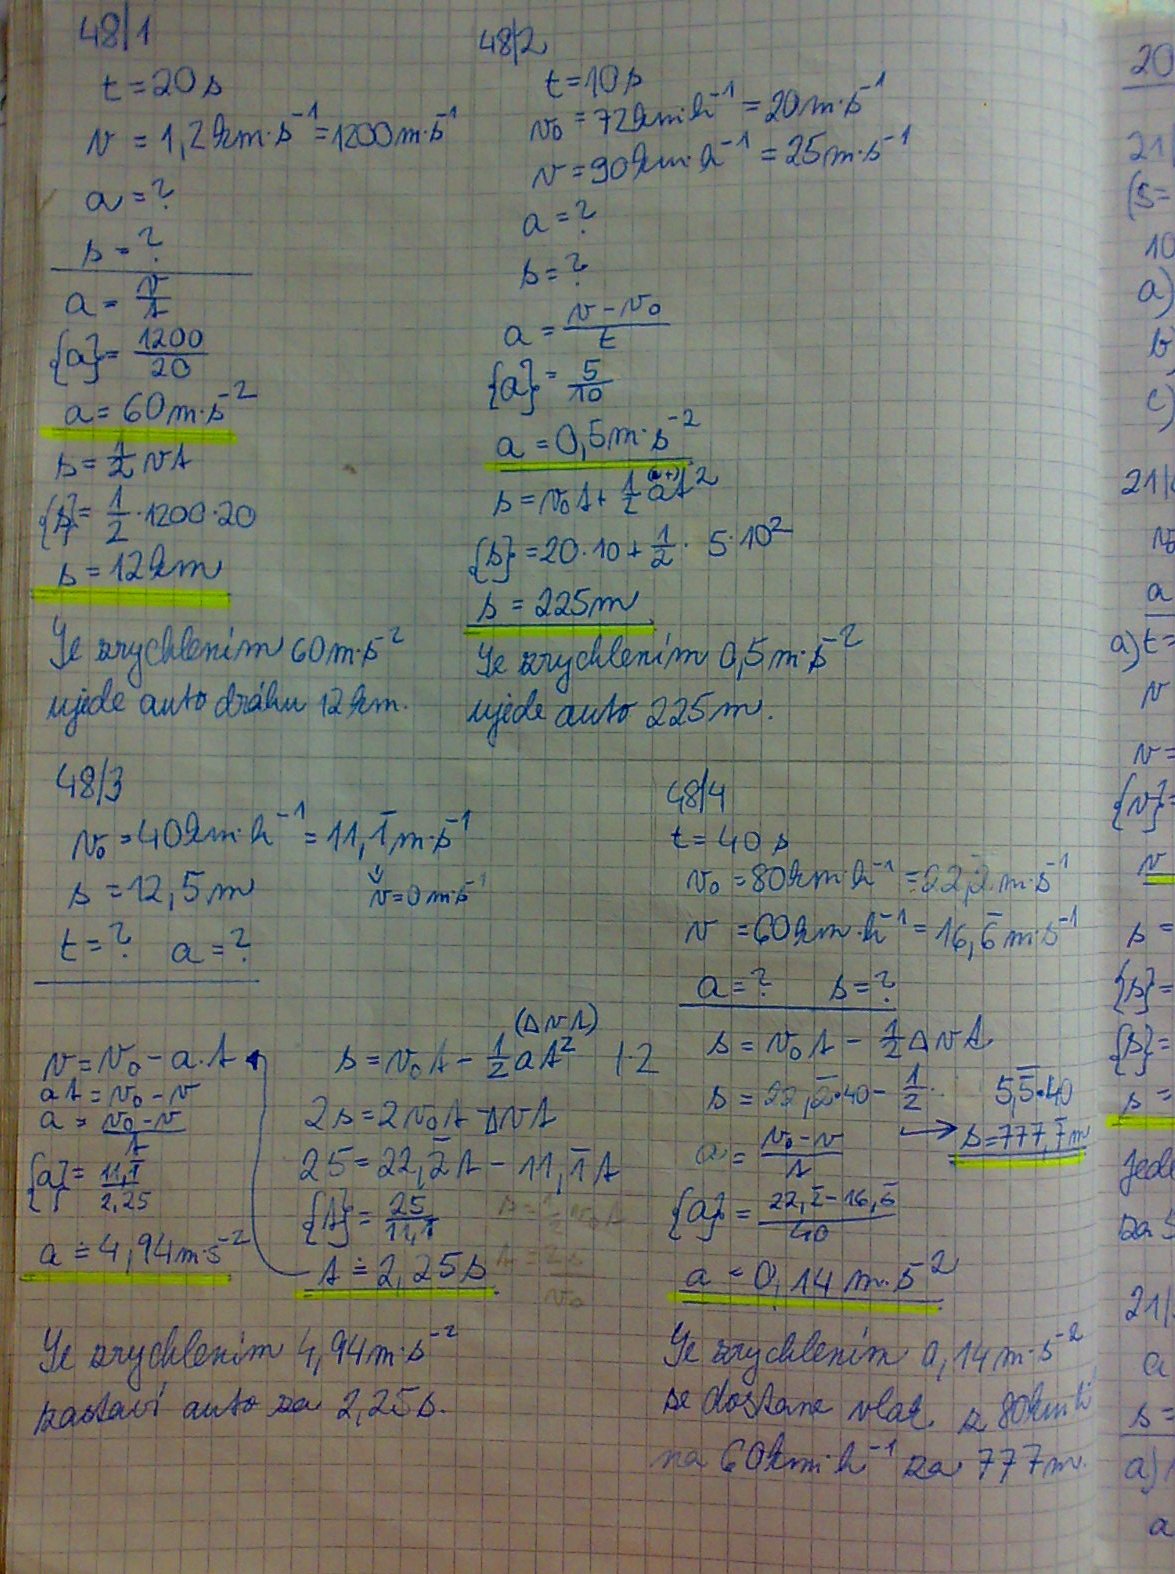 48/1
t = 20 s
v = 1,2 km·s⁻¹ = 1200 m·s⁻¹
a = ?
s = ?
a = v/t
{a} = 1200/20
a = 60 m·s⁻²
s = 1/2 vt
{s} = 1/2 · 1200 · 20
s = 12 km
Se zrychlením 60 m·s⁻²
ujede auto dráhu 12 km.
48/2
t = 10 s
v₀ = 72 km·h⁻¹ = 20 m·s⁻¹
v = 90 km·h⁻¹ = 25 m·s⁻¹
a = ?
s = ?
a = (v - v₀)/t
{a} = 5/10
a = 0,5 m·s⁻²
s = v₀t + 1/2 at²
{s} = 20·10 + 1/2 · 5·10²
s = 225 m
Se zrychlením 0,5 m·s⁻²
ujede auto 225 m.
48/3
v₀ = 40 km·h⁻¹ = 11,1̅ m·s⁻¹
s = 12,5 m
v = 0 m·s⁻¹
t = ? a = ?
v = v₀ - a·t
at = v₀ - v
a = (v₀ - v)/t
{a} = 11,1̅/2,25
a ≐ 4,94 m·s⁻²
(Δvt)
s = v₀t - 1/2 at² /·2
2s = 2v₀t - Δvt
25 = 22,2̅t - 11,1̅t
{t} = 25/11,1̅
t ≐ 2,25 s
Se zrychlením 4,94 m·s⁻²
zastaví auto za 2,25 s.
48/4
t = 40 s
v₀ = 80 km·h⁻¹ = 22,2̅ m·s⁻¹
v = 60 km·h⁻¹ = 16,6̅ m·s⁻¹
a = ? s = ?
s = v₀t - 1/2 Δvt
s = 22,2̅·40 - 1/2 · 5,5̅·40
s = 777,7̅ m
a = (v₀ - v)/t
{a} = (22,2̅ - 16,6̅)/40
a = 0,14 m·s⁻²
Se zrychlením 0,14 m·s⁻²
se dostane vlak z 80 km·h⁻¹
na 60 km·h⁻¹ za 777 m.
20
21/
(s =
10
a)
b
c)
21/
v₀
a
a) t =
v
v =
{v} =
v
s =
{s} =
{s} =
s =
jede
za 5
21/
a
s =
a)
a